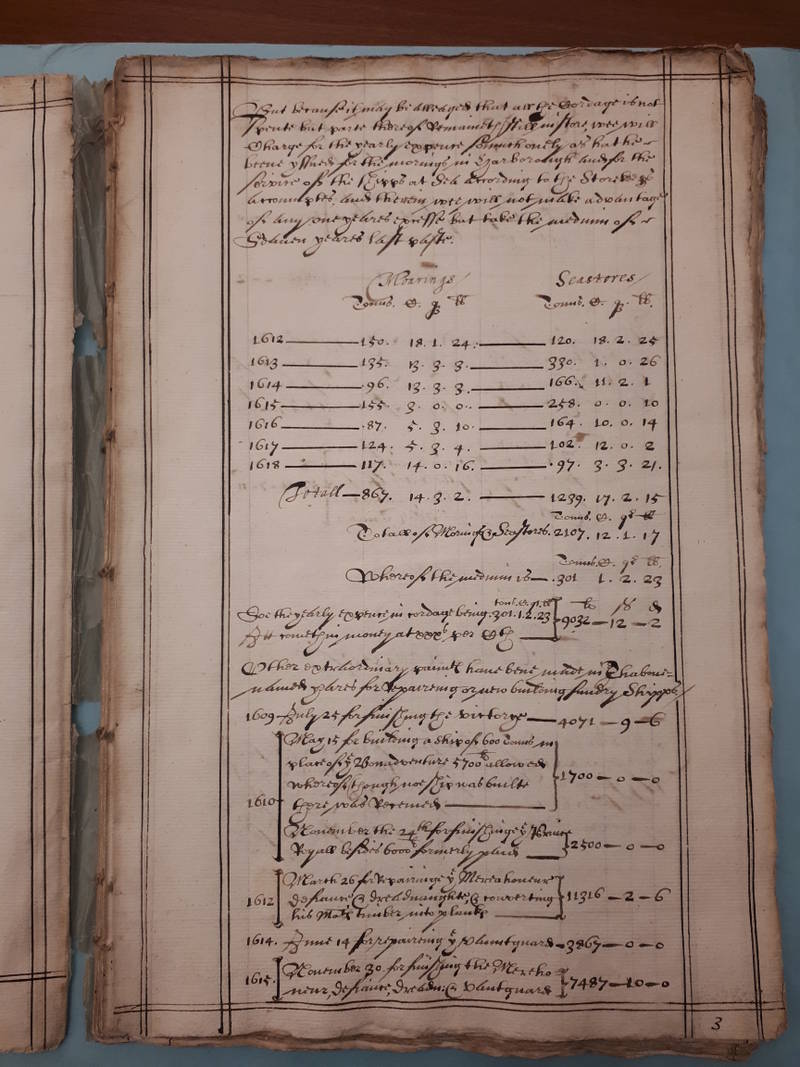 But because it may be alleaged that all the Cordage is not
spente but parte thereof Remaineth still in store, wee will
Charge for the yearly expence somuch onely as hathe
beene yssued for the moorings in Harborough and for the
service of the shipps at sea according to the Storekeepers
accomptes, and therein wee will not make advantage
of any one yeares excesse but take the medium of
Seaven yeares last paste.
Moarings Seastores
Tonns. C. q. lb Tonns. C. q. lb.
1612 150. 18. 1. 24. 120. 18. 2. 25
1613 135. 13. 3. 3. 330. 1. 0. 26
1614 96. 13. 3. 3. 166. 11. 2. 1
1615 155. 3. 0. 0. 258. 0. 0. 10
1616 87. 5. 3. 10. 164. 10. 0. 14
1617 124. 5. 3. 4. 102. 12. 0. 2
1618 117. 14. 0. 16. 97. 3. 3. 21.
Totall 867. 14. 3. 2. 1239. 17. 2. 15
Tonns. C. qr lb
Totall of Moorings & Seastores. 2107. 12. 1. 17
Tonns. C. qr lb.
Whereof the medium is 301 1. 2. 23
tons. C. q. lb lb s d
Soe the yearly expence in cordage being 301. 1. 2. 23 9032 – 12 – 2
Att cometh in money at xxxs per C th
Other extraordinary paimts have bene made in thabove
named yeares for Repaireing or new building sundry Shipps
1609 July 25 for finishing the victorye 4071 – 9 – 6
May 15 for building a ship of 600 Tonns in
place of ye Bonadventure 5700lb allowed
whereof though noe ship was builte 1700 – 0 – 0
1610 there was Received
November the 24th for finishinge ye Prince
Royall besides 6000lb formerly paid 2500 – 0 – 0
March 26 for Repairinge ye Merhoneur
1612 defiance & dreadnaughte, & converting 11316 – 2 – 6
his Mats timber into planke
1614. June 14 for repaireing ye Vauntguard 3867 – 0 – 0
1615. November 30. for finishing the Merho
neur, defiance, dreadn: & Vantguard 7487 – 10 – 0
3